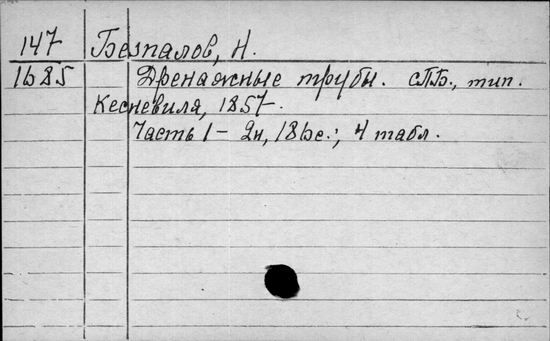 147 Безпалов, Н.
1685 Дренажные трубы. СПБ., тип.
Кесневиля, 1857.
Часть 1 - 2н, 186с.; 4 табл.